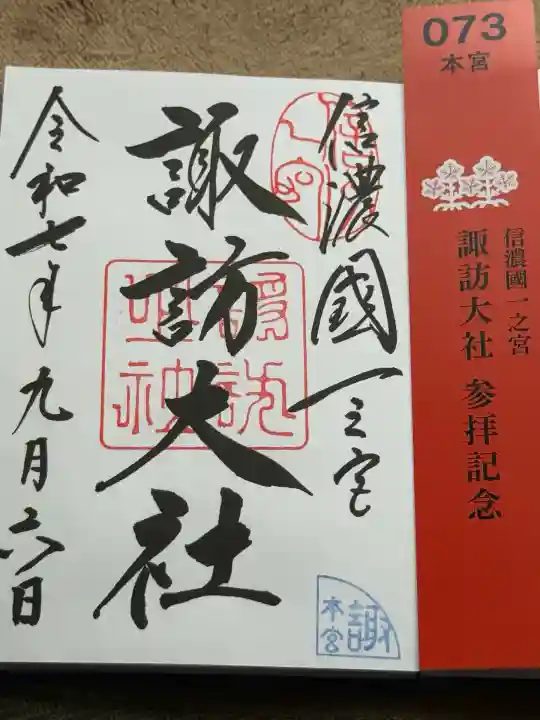 信濃國一之宮
諏訪大社
令和七年九月六日
諏
本宮
073
本宮
信濃國一之宮
諏訪大社 参拝記念